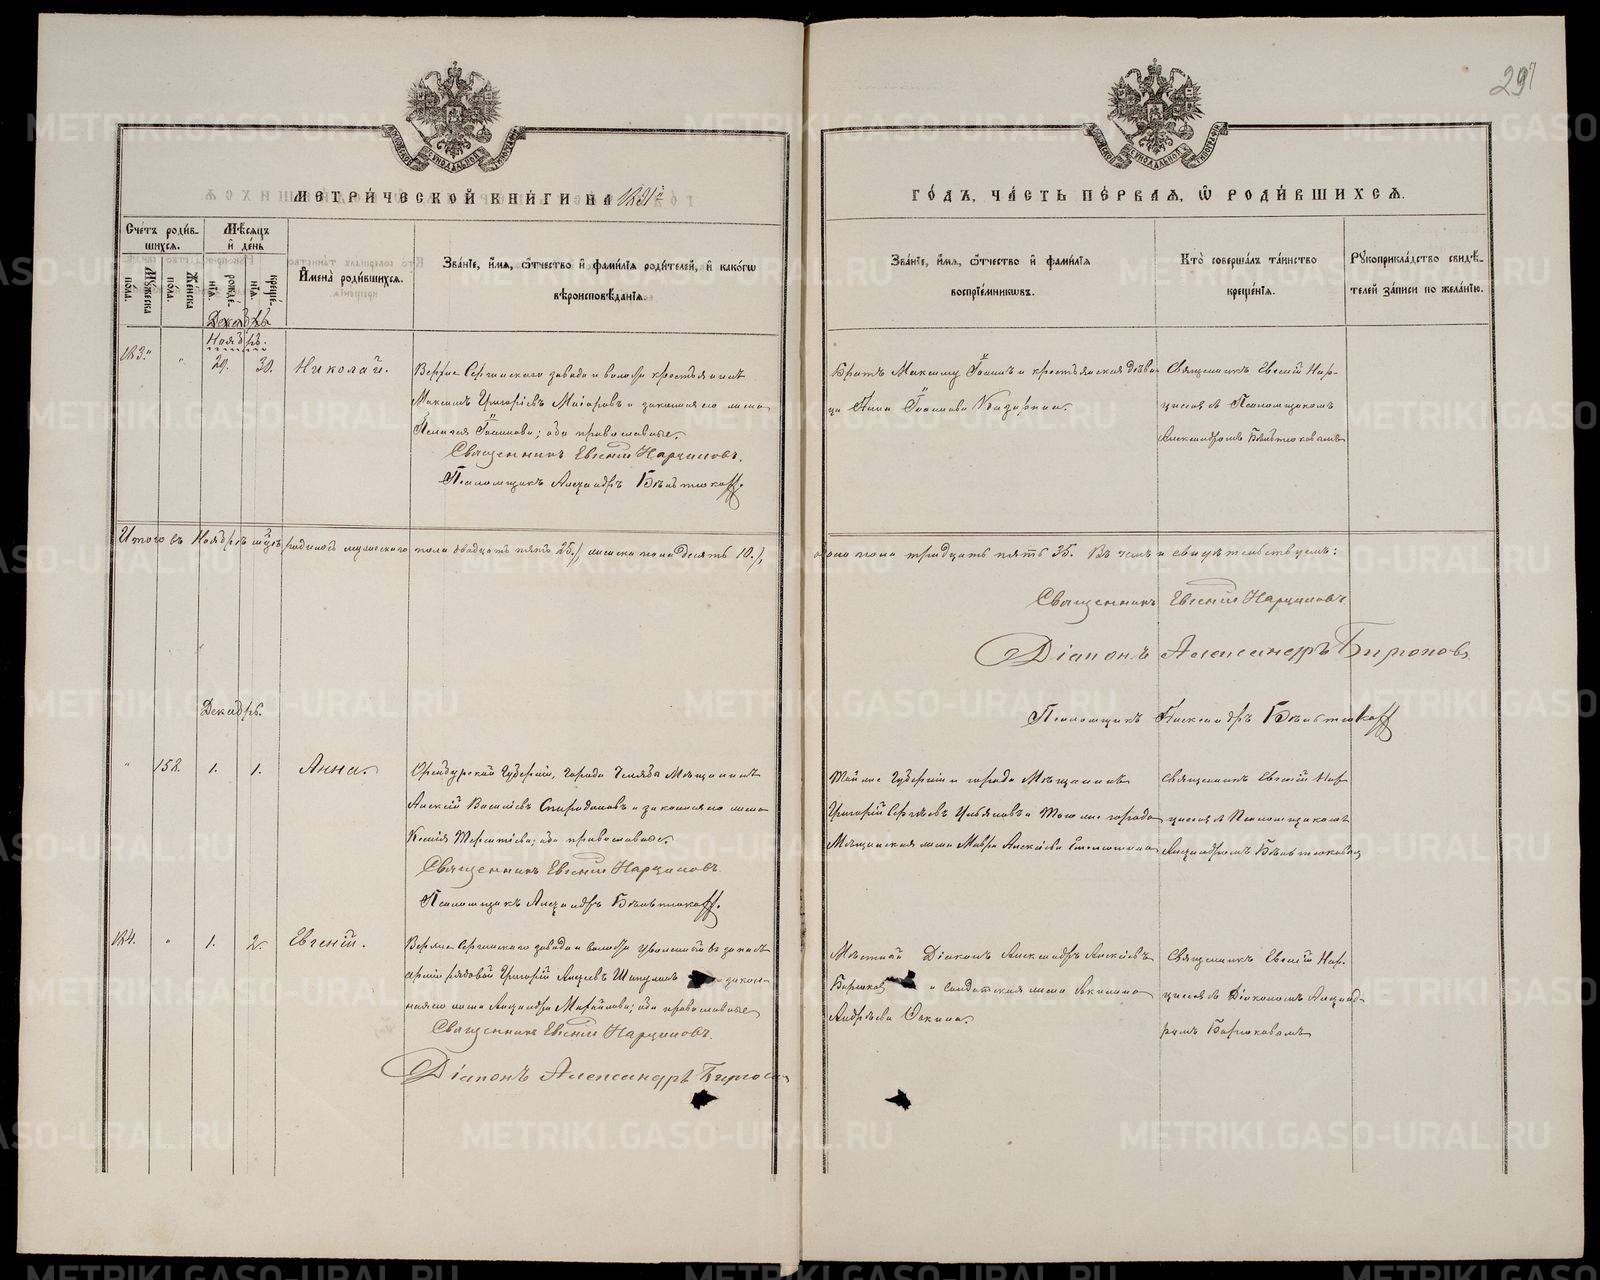 297
МЕТРИЧЕСКОЙ КНИГИ НА 1891й
ГОДЪ, ЧАСТЬ ПЕРВАЯ, Ѿ РОДИВШИХСЯ.
Счетъ родив-
шихся.
Мѣсяцъ
и день
Мужеска
пола.
Женска
пола.
рожде-
нія.
креще-
нія.
Имена родившихся.
Званіе, имя, ѿтчество и фамилія родителей, и какогѡ
вѣроисповѣданія.
Званіе, имя, ѿтчество и фамилія
воспріемникѡвъ.
Кто совершалъ таинство
крещенія.
Рукоприкладство свидѣ-
телей записи по желанію.
Ноябрь.
183. " 29. 30. Николай.
Верхне Сергинскаго завода и волости крестьянинъ
Максимъ Григорьевъ и законная его жена
Іоаннова; оба православные.
Священникъ Евгеній Нарциссовъ.
Псаломщикъ Александръ
Братъ Максиму и крестьянская дѣви-
ца Анна Іоаннова
Священникъ Евгеній Нар-
циссовъ Псаломщикомъ
Александромъ
Итого въ Ноябрѣ мцѣ родилось мужескаго пола двадцать пять 25, женска пола десять 10,
обоего пола тридцать пять 35. Въ чемъ и свидѣтельствуемъ:
Священникъ Евгеній Нарциссовъ
Діаконъ Александръ Бирюковъ
Псаломщикъ Александръ
Декабрь.
" 152. 1. 1. Анна.
Оренбургской Губерніи, города Челябы Мѣщанинъ
Алексій Василіевъ Спиридоновъ и законная его жена
Ксенія Терентіева; оба православные.
Священникъ Евгеній Нарциссовъ.
Псаломщикъ Александръ
Той же Губерніи и города Мѣщанинъ
Григорій Сергѣевъ Ульяновъ и того же города
Мѣщанская жена Мавра Алексѣева
Священникъ Евгеній Нар-
циссовъ Псаломщикомъ
Александромъ
184. " 1. 2. Евгеній.
Верхне Сергинскаго завода и волости уволенный въ запасъ
арміи рядовой Григорій Андреевъ и закон-
ная его жена Александра Михайлова; оба православные
Священникъ Евгеній Нарциссовъ.
Діаконъ Александръ Бирюковъ
Мѣстный Діаконъ Александръ Алексѣевъ
Бирюковъ и солдатская жена Акилина
Андреева
Священникъ Евгеній Нар-
циссовъ Діакономъ Александ-
ромъ Бирюковымъ
METRIKI.GASO-URAL.RU